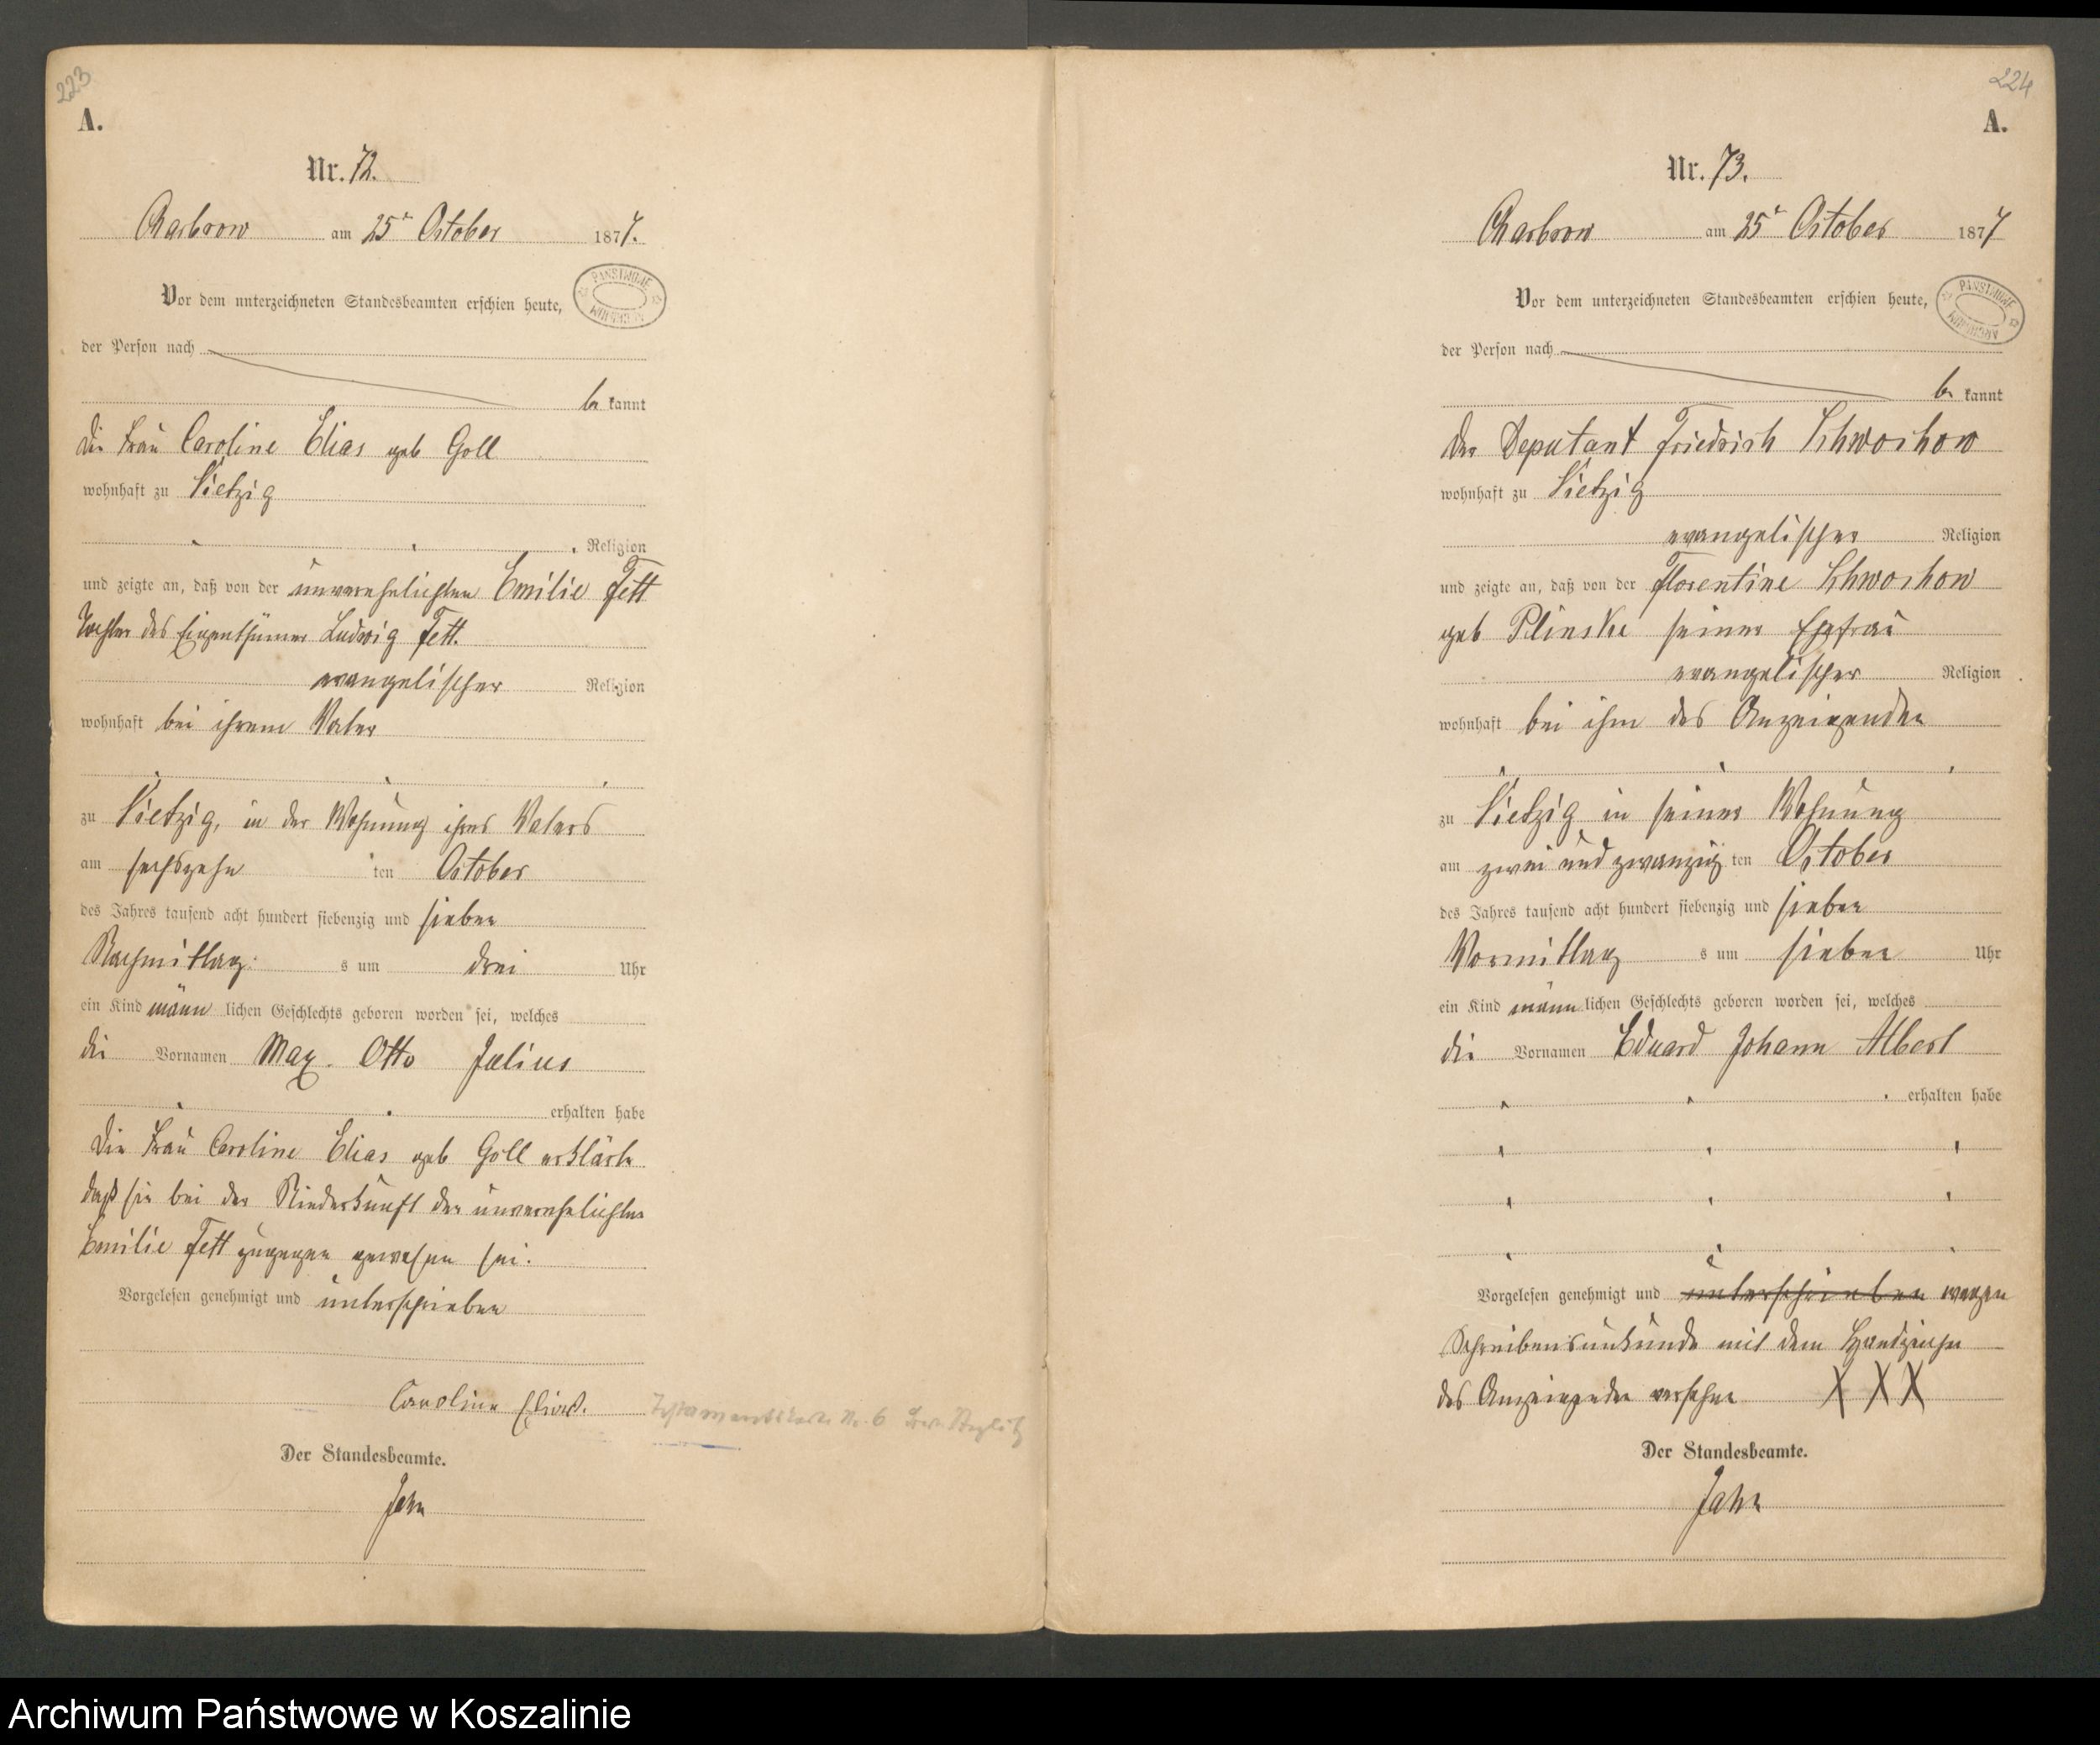 223
A.
Nr. 72.
Charbrow am 25t October 1877.
Vor dem unterzeichneten Standesbeamten erschien heute,
PANSTWOWE ARCHIWUM
der Person nach
be kannt
die Frau Caroline Elias geb Goll
wohnhaft zu Vietzig
Religion
und zeigte an, daß von der unverehelichten Emilie Fett
Tochter des Eigenthümer Ludwig Fett.
evangelischer Religion
wohnhaft bei ihrem Vater
zu Vietzig, in der Wohnung ihres Vaters
am sechszehn ten October
des Jahres tausend acht hundert siebenzig und sieben
Nachmittag s um drei Uhr
ein Kind männ lichen Geschlechts geboren worden sei, welches
die Vornamen Max. Otto Julius
erhalten habe
Die Frau Caroline Elias geb Goll erklärte
daß sie bei der Niederkunft der unverehelichten
Emilie Fett zugegen gewesen sei.
Vorgelesen genehmigt und unterschrieben
Caroline Elias.
Der Standesbeamte.
Jahn
224
A.
Nr. 73.
Charbrow am 25t October 1877
Vor dem unterzeichneten Standesbeamten erschien heute,
PANSTWOWE ARCHIWUM
der Person nach
be kannt
der Deputant Friedrich Schwochow
wohnhaft zu Vietzig
evangelischer Religion
und zeigte an, daß von der Florentine Schwochow
geb Plinske seiner Ehefrau
evangelischer Religion
wohnhaft bei ihm des Anzeigenden
zu Vietzig in seiner Wohnung
am zwei und zwanzig ten October
des Jahres tausend acht hundert siebenzig und sieben
Vormittag s um sieben Uhr
ein Kind männ lichen Geschlechts geboren worden sei, welches
die Vornamen Eduard Johann Albert
erhalten habe
Vorgelesen genehmigt und unterschrieben wegen
Schreibensunkunde mit dem Handzeichen
des Anzeigenden versehen X X X
Der Standesbeamte.
Jahn
Archiwum Państwowe w Koszalinie